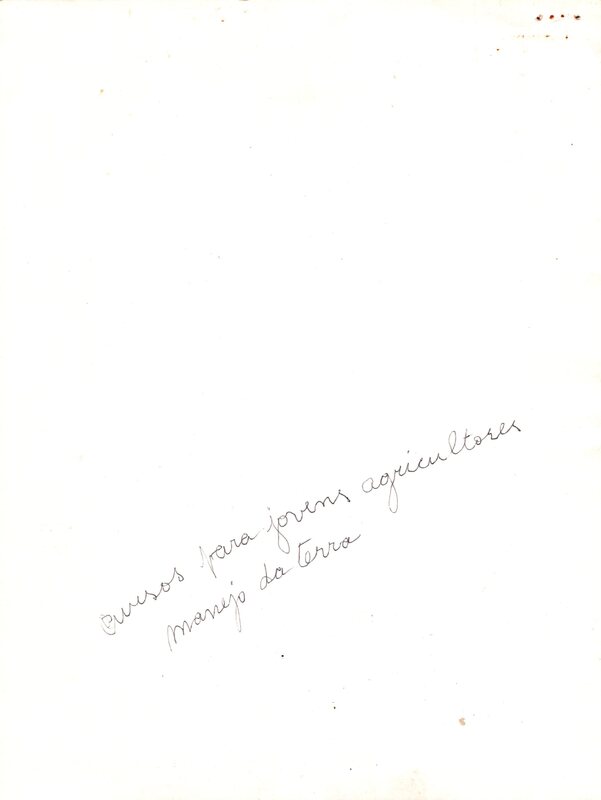 cursos para jovens agricultores
manejo da terra